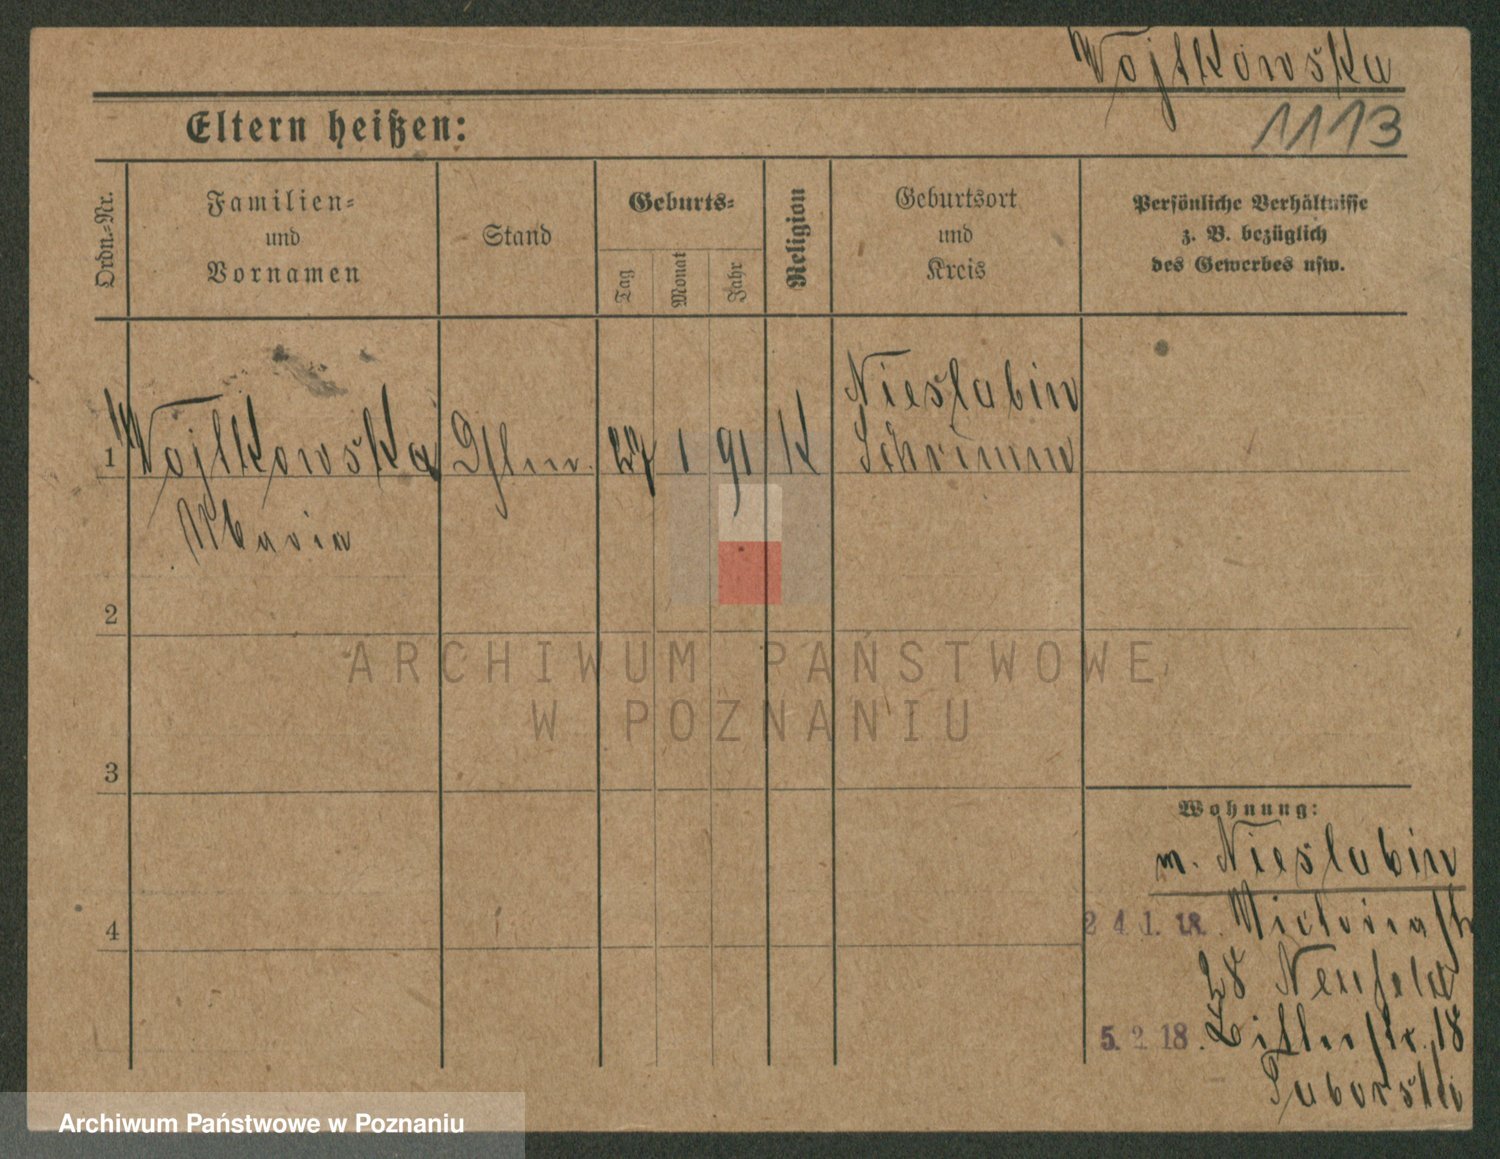 Wojtkowska
1113
Eltern heißen:
Ordn.-Nr.
Familien-
und
Vornamen
Stand
Geburts-
Tag
Monat
Jahr
Religion
Geburtsort
und
Kreis
Persönliche Verhältnisse
z. B. bezüglich
des Gewerbes usw.
1 Wojtkowska 27 1 91 K Nieslabin
Schrimm
Maria
2
3
4
Wohnung:
m. Nieslabin
24.1.18. Victoriastr
28 Neufeld
5.2.18. str. 18
Taborski
ARCHIWUM PAŃSTWOWE
W POZNANIU
Archiwum Państwowe w Poznaniu